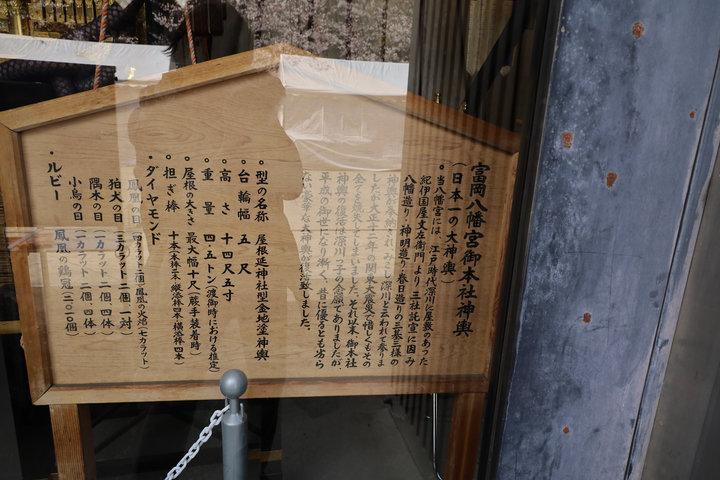 富岡八幡宮御本社神輿
(日本一の大神輿)
・当八幡宮には、江戸時代深川に屋敷のあった
紀伊国屋文左衛門より三社託宣に因み
八幡造り・神明造り・春日造りの三基三様の
神輿が奉納され みこし深川と云われて参りま
したが大正十二年の関東大震災で惜しくもその
全てを焼失してしまいました。それ以来、御本社
神輿の復活は深川っ子の念願でありましたが、
平成の御世になり漸く、昔に優るとも劣ら
ない豪華な大神輿が復活致しました。
・型の名称 屋根延神社型金地塗神輿
・台輪幅 五尺
・高さ 十四尺五寸
・重量 四・五トン(渡御時における推定)
・屋根の大きさ 最大幅十尺(蕨手装着時)
・担ぎ棒 十本(本棒二本 縦添棒四本 横添棒四本)
・ダイヤモンド
鳳凰の目(四カラット二個)鳳凰の火焔(七カラット)
狛犬の目(三カラット二個 一対)
隅木の目(一カラット二個 四体)
小鳥の目(一カラット二個 四体)
・ルビー 鳳凰の鶏冠(二〇一〇個)